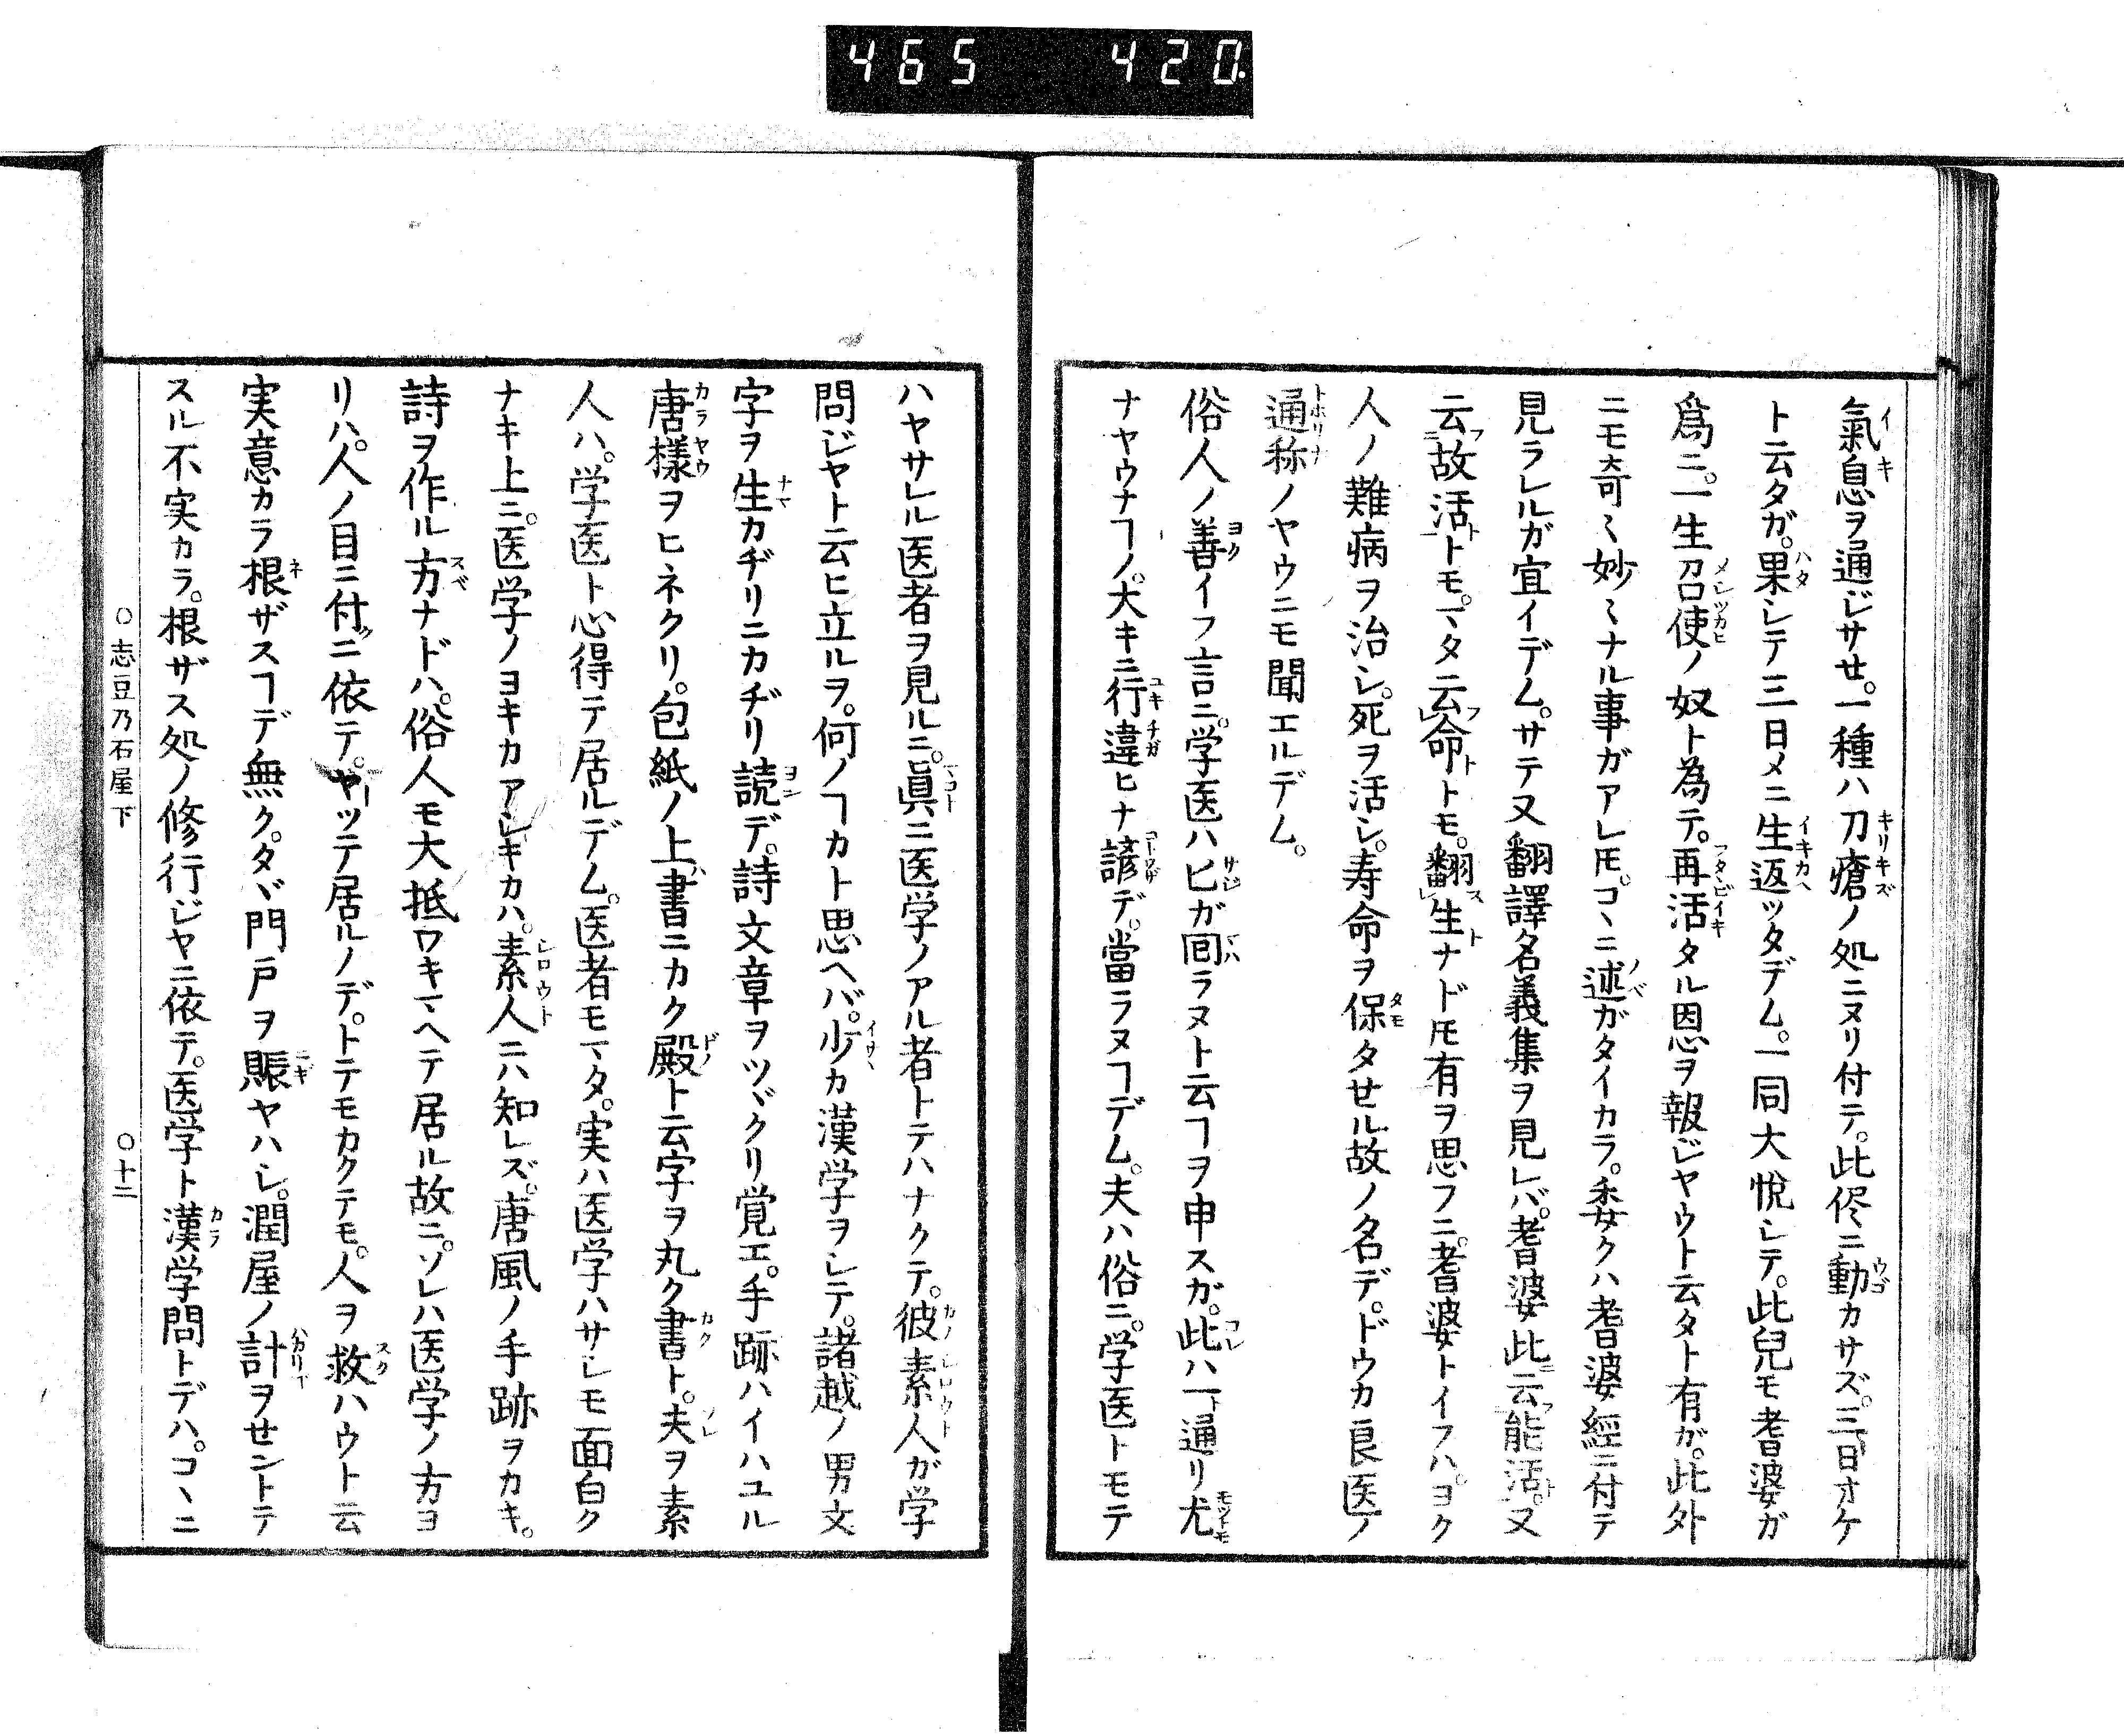 465 420.
氣息ヲ通ジサせ。一種ハ刀瘡ノ処ニヌリ付テ。此侭ニ動カサズ。三日オケ
ト云タガ。果シテ三日メニ生返ッタデム。一同大悅シテ。此兒モ耆婆ガ
爲ニ。一生召使ノ奴ト為テ。再活タル恩ヲ報ジヤウト云タト有ガ。此外
ニモ奇〻妙〻ナル事ガアレ𪜈。コヽニ述ガタイカラ。委クハ耆婆經ニ付テ
見ラレルガ宜イデム。サテ又翻譯名義集ヲ見レバ。耆婆此ニ云能活ト。又
云故活トモ。マタ云命トモ。翻生ナド𪜈有ヲ思フニ。耆婆トイフハ。ヨク
人ノ難病ヲ治シ。死ヲ活シ。寿命ヲ保タせル故ノ名デ。ドウカ良医ノ
通称ノヤウニモ聞エルデム。
俗人ノ善イフ言ニ。学医ハヒガ囘ラヌト云ヿヲ申スガ。此ハ一ト通リ尤
ナヤウナヿノ。大キニ行違ヒナ諺デ。當ラヌヿデム。夫ハ俗ニ。学医トモテ
ハヤサレル医者ヲ見ルニ。眞ニ医学ノアル者トテハナクテ。彼素人ガ学
問ジヤト云ヒ立ルヲ。何ノヿカト思ヘバ。少カ漢学ヲシテ。諸越ノ男文
字ヲ生カヂリニカヂリ読デ。詩文章ヲツヾクリ覚エ。手跡ハイハユル
唐樣ヲヒネクリ。包紙ノ上書ニカク殿ト云字ヲ丸ク書ト。夫ヲ素
人ハ。学医ト心得テ居ルデム。医者モマタ。実ハ医学ハサシモ面白ク
ナキ上ニ。医学ノヨキカアシキカハ。素人ニハ知レズ。唐風ノ手跡ヲカキ。
詩ヲ作ル方ナドハ。俗人モ大抵ワキマヘテ居ル故ニ。ソレハ医学ノ方ヨ
リハ。人ノ目ニ付ニ依テ。ヤッテ居ルノデ。トテモカクテモ。人ヲ救ハウト云
実意カラ根ザスヿデ無ク。タヾ門戸ヲ賑ヤハシ。潤屋ノ計ヲせントテ
スル不実カラ。根ザス処ノ修行ジヤニ依テ。医学ト漢学問トデハ。コヽニ
○志豆乃石屋下 ○十二